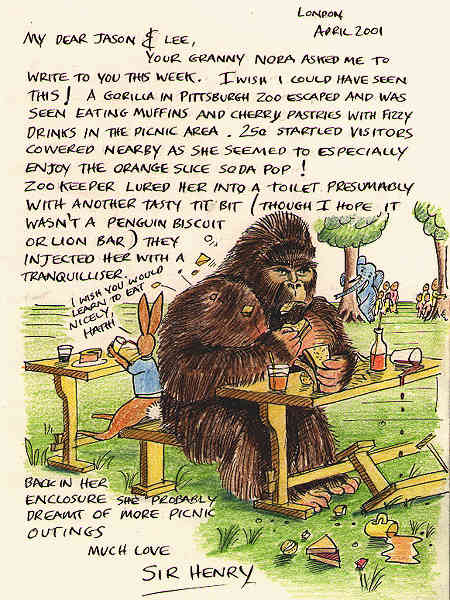 LONDON
APRIL 2001
MY DEAR JASON & LEE,
YOUR GRANNY NORA ASKED ME TO
WRITE TO YOU THIS WEEK. I WISH I COULD HAVE SEEN
THIS! A GORILLA IN PITTSBURGH ZOO ESCAPED AND WAS
SEEN EATING MUFFINS AND CHERRY PASTRIES WITH FIZZY
DRINKS IN THE PICNIC AREA. 250 STARTLED VISITORS
COWERED NEARBY AS SHE SEEMED TO ESPECIALLY
ENJOY THE ORANGE SLICE SODA POP!
ZOO KEEPER LURED HER INTO A TOILET PRESUMABLY
WITH ANOTHER TASTY TIT BIT (THOUGH I HOPE IT
WASN'T A PENGUIN BISCUIT
OR LION BAR) THEY
INJECTED HER WITH A
TRANQUILLISER.
I WISH YOU WOULD
LEARN TO EAT
NICELY,
BACK IN HER
ENCLOSURE SHE PROBABLY
DREAMT OF MORE PICNIC
OUTINGS
MUCH LOVE
SIR HENRY